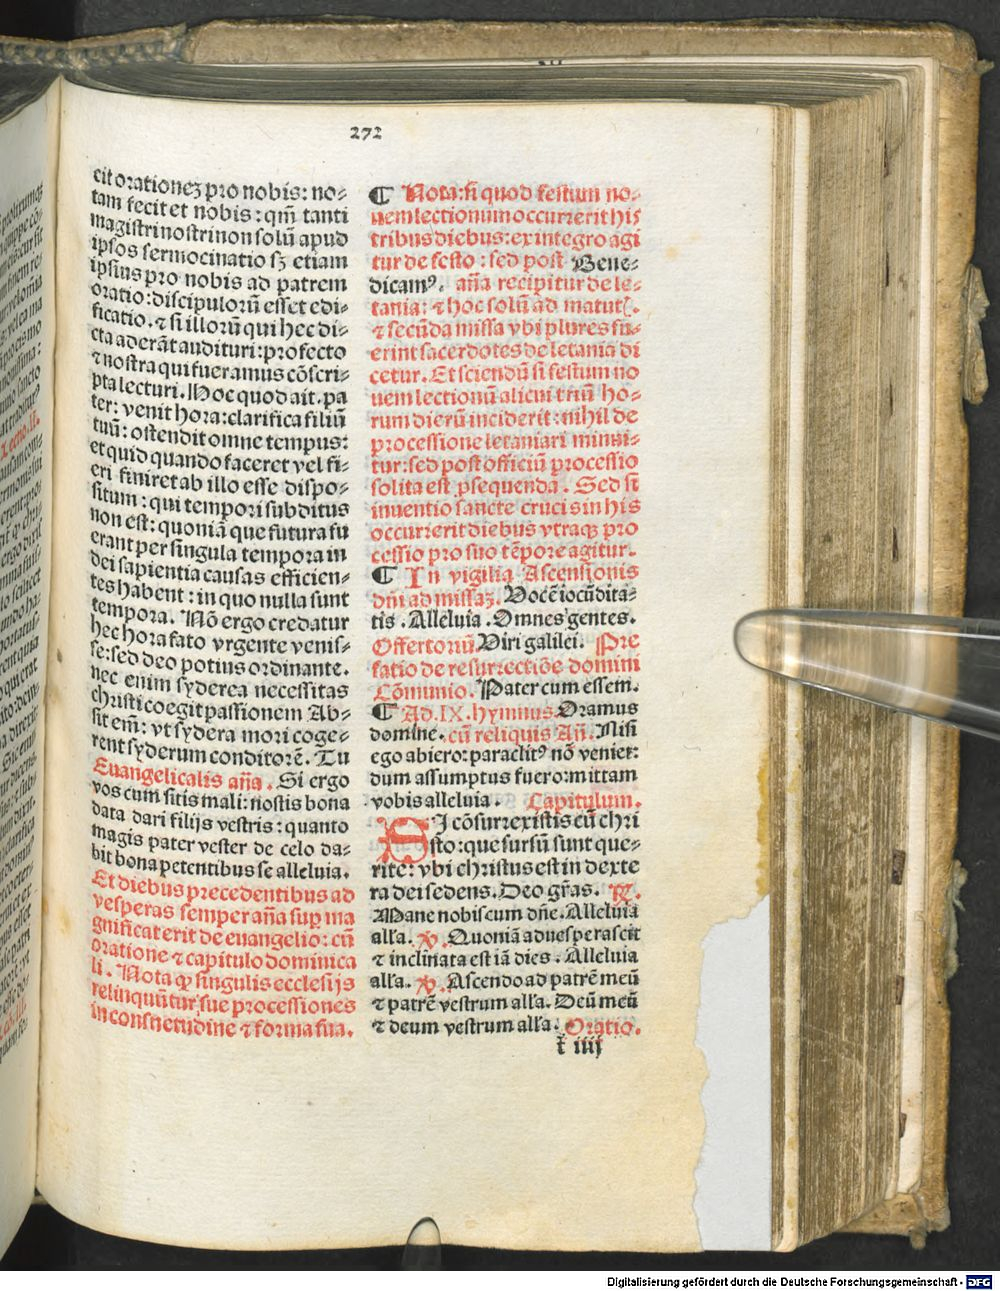 272
cit orationeȝ pro nobis: no⸗
tam fecit et nobis: qm̄ tanti
magistri nostri non solū apud
ipsos sermocinatio sȝ etiam
ipsius pro nobis ad patrem
oratio: discipulorū esset edi⸗
ficatio. ⁊ si illorū qui hec di⸗
cta aderāt audituri: profecto
⁊ nostra qui fueramus cōscri⸗
pta lecturi. Hoc quod ait. pa
ter: venit hora: clarifica filiū
tuū: ostendit omne tempus:
et quid quando faceret vel fi⸗
eri finiret ab illo esse dispo⸗
situm: qui tempori subditus
non est: quoniā que futura fu
erant per singula tempora in
dei sapientia causas efficien⸗
tes habent: in quo nulla sunt
tempora. Nō ergo credatur
hec hora fato vrgente venis⸗
se: sed deo potius ordinante.
nec enim syderea necessitas
christi coegit passionem Ab⸗
sit em̄: vt sydera mori coge⸗
rent syderum conditorē. Tu
Euangelicalis an̄a. Si ergo
vos cum sitis mali: nostis bona
data dari filijs vestris: quanto
magis pater vester de celo da⸗
bit bona petentibus se alleluia.
Et diebus precedentibus ad
vesperas semper an̄a suꝑ ma
gnificat erit de euangelio: cū
oratione ⁊ capitulo dominica
li. Nota ꝙ singulis ecclesijs
relinquūtur sue processiones
in consuetudine ⁊ forma sua.
¶ Nota: si quod festum no⸗
uem lectionum occurrerit his
tribus diebus: ex integro agi
tur de festo: sed post Bene⸗
dicamꝰ. an̄a recipitur de le⸗
tania: ⁊ hoc solū ad matuť.
⁊ secūda missa vbi plures fu⸗
erint sacerdotes de letania di
cetur. Et sciendū si festum no
uem lectionū alicui triū ho⸗
rum dierū inciderit: nihil de
processione letaniari minui⸗
tur: sed post officiū processio
solita est ꝓsequenda. Sed si
inuentio sancte crucis in his
occurrerit diebus vtraqȝ pro
cessio pro suo tēpore agitur.
¶ In vigilia Ascensionis
dn̄i ad missaȝ. Vocē iocūdita⸗
tis. Alleluia. Omnes gentes.
Offertoriū. Viri galilei. Pre
fatio de resurrectiōe domini
Cōmunio. Pater cum essem.
¶ Ad. IX. hymnus. Oramus
domine. cū reliquis An̄. Nisi
ego abiero: paraclitꝰ nō veniet:
dum assumptus fuero: mittam
vobis alleluia. Capitulum.
SI cōsurrexistis cū chri
sto: que sursū sunt que⸗
rite: vbi christus est in dexte
ra dei sedens. Deo gr̄as. ℟.
Mane nobiscum dn̄e. Alleluia
all'a. ℣. Quoniā aduesperascit
⁊ inclinata est iā dies. Alleluia
all'a. ℣. Ascendo ad patrē meū
⁊ patrē vestrum all'a. Deū meū
⁊ deum vestrum all'a. Oratio.
iiij
Digitalisierung gefördert durch die Deutsche Forschungsgemeinschaft - DFG